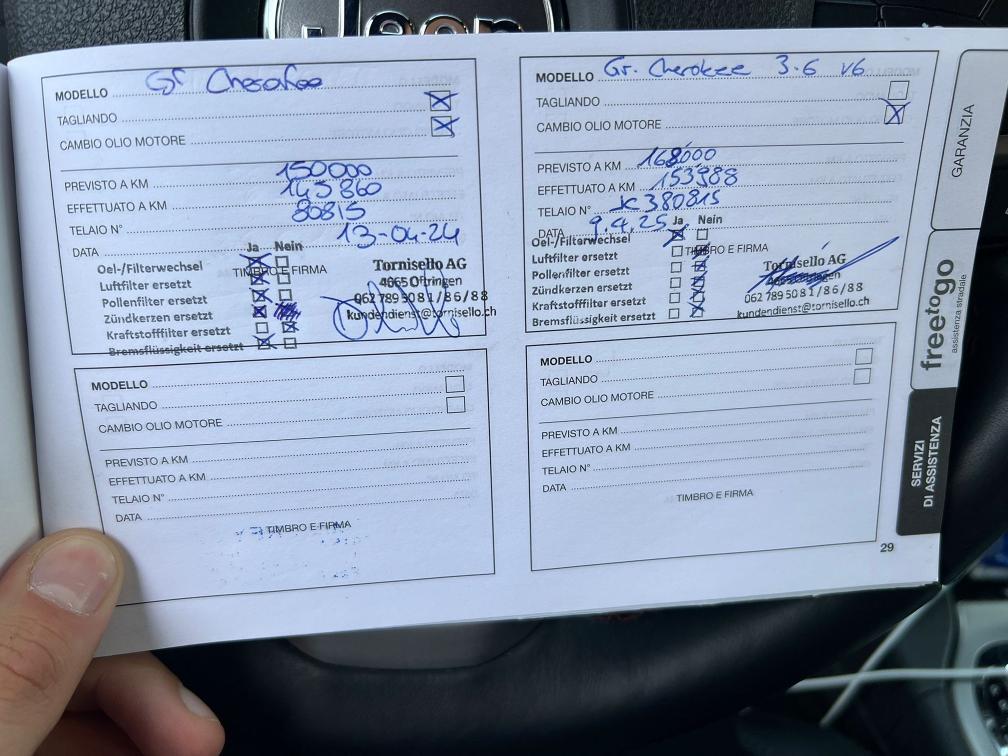 Jeep
MODELLO Gr Cherokee
TAGLIANDO
CAMBIO OLIO MOTORE
PREVISTO A KM 150000
EFFETTUATO A KM 145860
TELAIO N° 80815
DATA 13-04-24
Ja Nein
TIMBRO E FIRMA
Oel-/Filterwechsel
Luftfilter ersetzt
Pollenfilter ersetzt
Zündkerzen ersetzt
Kraftstofffilter ersetzt
Bremsflüssigkeit ersetzt
Tornisello AG
4665 Oftringen
062 789 50 81 / 86 / 88
kundendienst@tornisello.ch
MODELLO Gr. Cherokee 3.6 V6
TAGLIANDO
CAMBIO OLIO MOTORE
PREVISTO A KM 168000
EFFETTUATO A KM 153988
TELAIO N° JC380815
DATA 9.4.25
Ja Nein
TIMBRO E FIRMA
Oel-/Filterwechsel
Luftfilter ersetzt
Pollenfilter ersetzt
Zündkerzen ersetzt
Kraftstofffilter ersetzt
Bremsflüssigkeit ersetzt
Tornisello AG
062 789 50 81 / 86 / 88
kundendienst@tornisello.ch
MODELLO
TAGLIANDO
CAMBIO OLIO MOTORE
PREVISTO A KM
EFFETTUATO A KM
TELAIO N°
DATA
TIMBRO E FIRMA
MODELLO
TAGLIANDO
CAMBIO OLIO MOTORE
PREVISTO A KM
EFFETTUATO A KM
TELAIO N°
DATA
TIMBRO E FIRMA
29
GARANZIA
freetogo
assistenza stradale
SERVIZI
DI ASSISTENZA